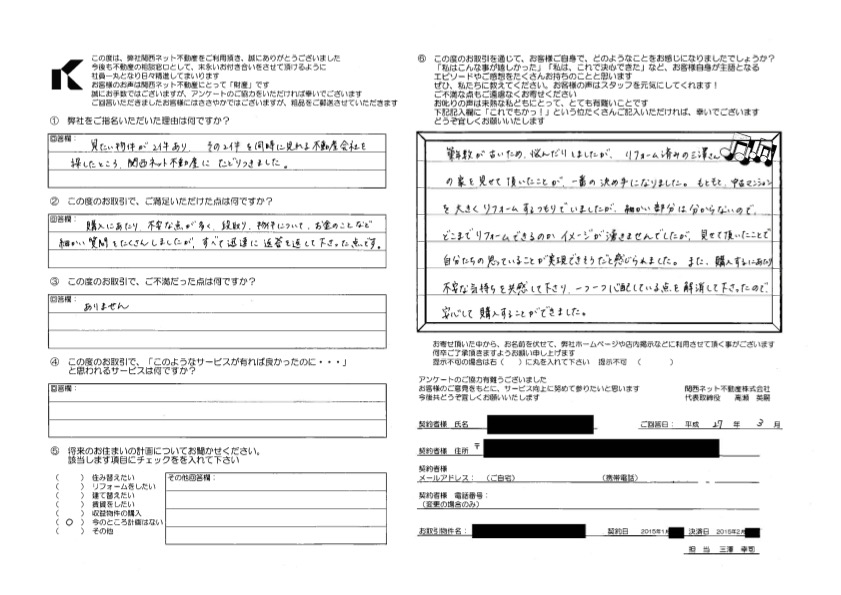 この度は、弊社関西ネット不動産をご利用頂き、誠にありがとうございました
今後も不動産の相談窓口として、末永いお付き合いをさせて頂けるように
社員一丸となり日々精進してまいります
お客様のお声は関西ネット不動産にとって「財産」です
誠にお手数ではございますが、アンケートのご協力をいただければ幸いでございます
ご回答いただきましたお客様にはささやかではございますが、粗品をご郵送させていただきます
① 弊社をご指名いただいた理由は何ですか?
回答欄:
見たい物件が2件あり、その2件を同時に見れる不動産会社を
探したところ、関西ネット不動産にたどりつきました。
② この度のお取引で、ご満足いただけた点は何ですか?
回答欄:
購入にあたり、不安な点が多く、段取り、物件について、お金のことなど
細かい質問をたくさんしましたが、すべて迅速に返答を返して下さった点です。
③ この度のお取引で、ご不満だった点は何ですか?
回答欄:
ありません
④ この度のお取引で、「このようなサービスが有れば良かったのに・・・」
と思われるサービスは何ですか?
回答欄:
⑤ 将来のお住まいの計画についてお聞かせください。
該当します項目にチェックをを入れて下さい
( ) 住み替えたい
( ) リフォームをしたい
( ) 建て替えたい
( ) 賃貸をしたい
( ) 収益物件の購入
( ○ ) 今のところ計画はない
( ) その他
その他回答欄:
⑥ この度のお取引を通じて、お客様ご自身で、どのようなことをお感じになりましたでしょうか?
「私はこんな事が嬉しかった」「私は、これで決心できた」など、お客様自身が主語となる
エピソードやご感想をたくさんお持ちのことと思います
ぜひ、私たちに教えてください。お客様の声はスタッフを元気にしてくれます!
ご不満な点もご遠慮なくお寄せください
お叱りの声は未熟な私どもにとって、とても有難いことです
下記記入欄に「これでもかっ!」という位たくさんご記入いただければ、幸いでございます
どうぞ宜しくお願いいたします
築年数が古いため、悩んだりしましたが、リフォーム済みの三澤さん
の家を見せて頂いたことが、一番の決め手になりました。もともと、中古マンション
を大きくリフォームするつもりでいましたが、細かい部分は分からないので、
どこまでリフォームできるのかイメージが湧きませんでしたが、見せて頂いたことで
自分たちの思っていることが実現できそうだと感じられました。また、購入するにあたり
不安な気持ちを共感して下さり、一つ一つ心配している点を解消して下さったので
安心して購入することができました。
お寄せ頂いた中から、お名前を伏せて、弊社ホームページや店内掲示などに利用させて頂く事がございます
何卒ご了承頂きますようお願い申し上げます
提示不可の場合は右( )に丸を入れて下さい 提示不可 ( )
アンケートのご協力有難うございました
お客様のご意見をもとに、サービス向上に努めて参りたいと思います
今後共どうぞ宜しくお願いいたします
関西ネット不動産株式会社
代表取締役 高瀬 英嗣
契約者様 氏名
ご回答日: 平成 27 年 3 月
契約者様 住所 〒
契約者様
メールアドレス: (ご自宅) (携帯電話)
契約者様 電話番号:
(変更の場合のみ)
お取引物件名: 契約日 2015年1月 決済日 2015年2月
担 当 三澤 幸司